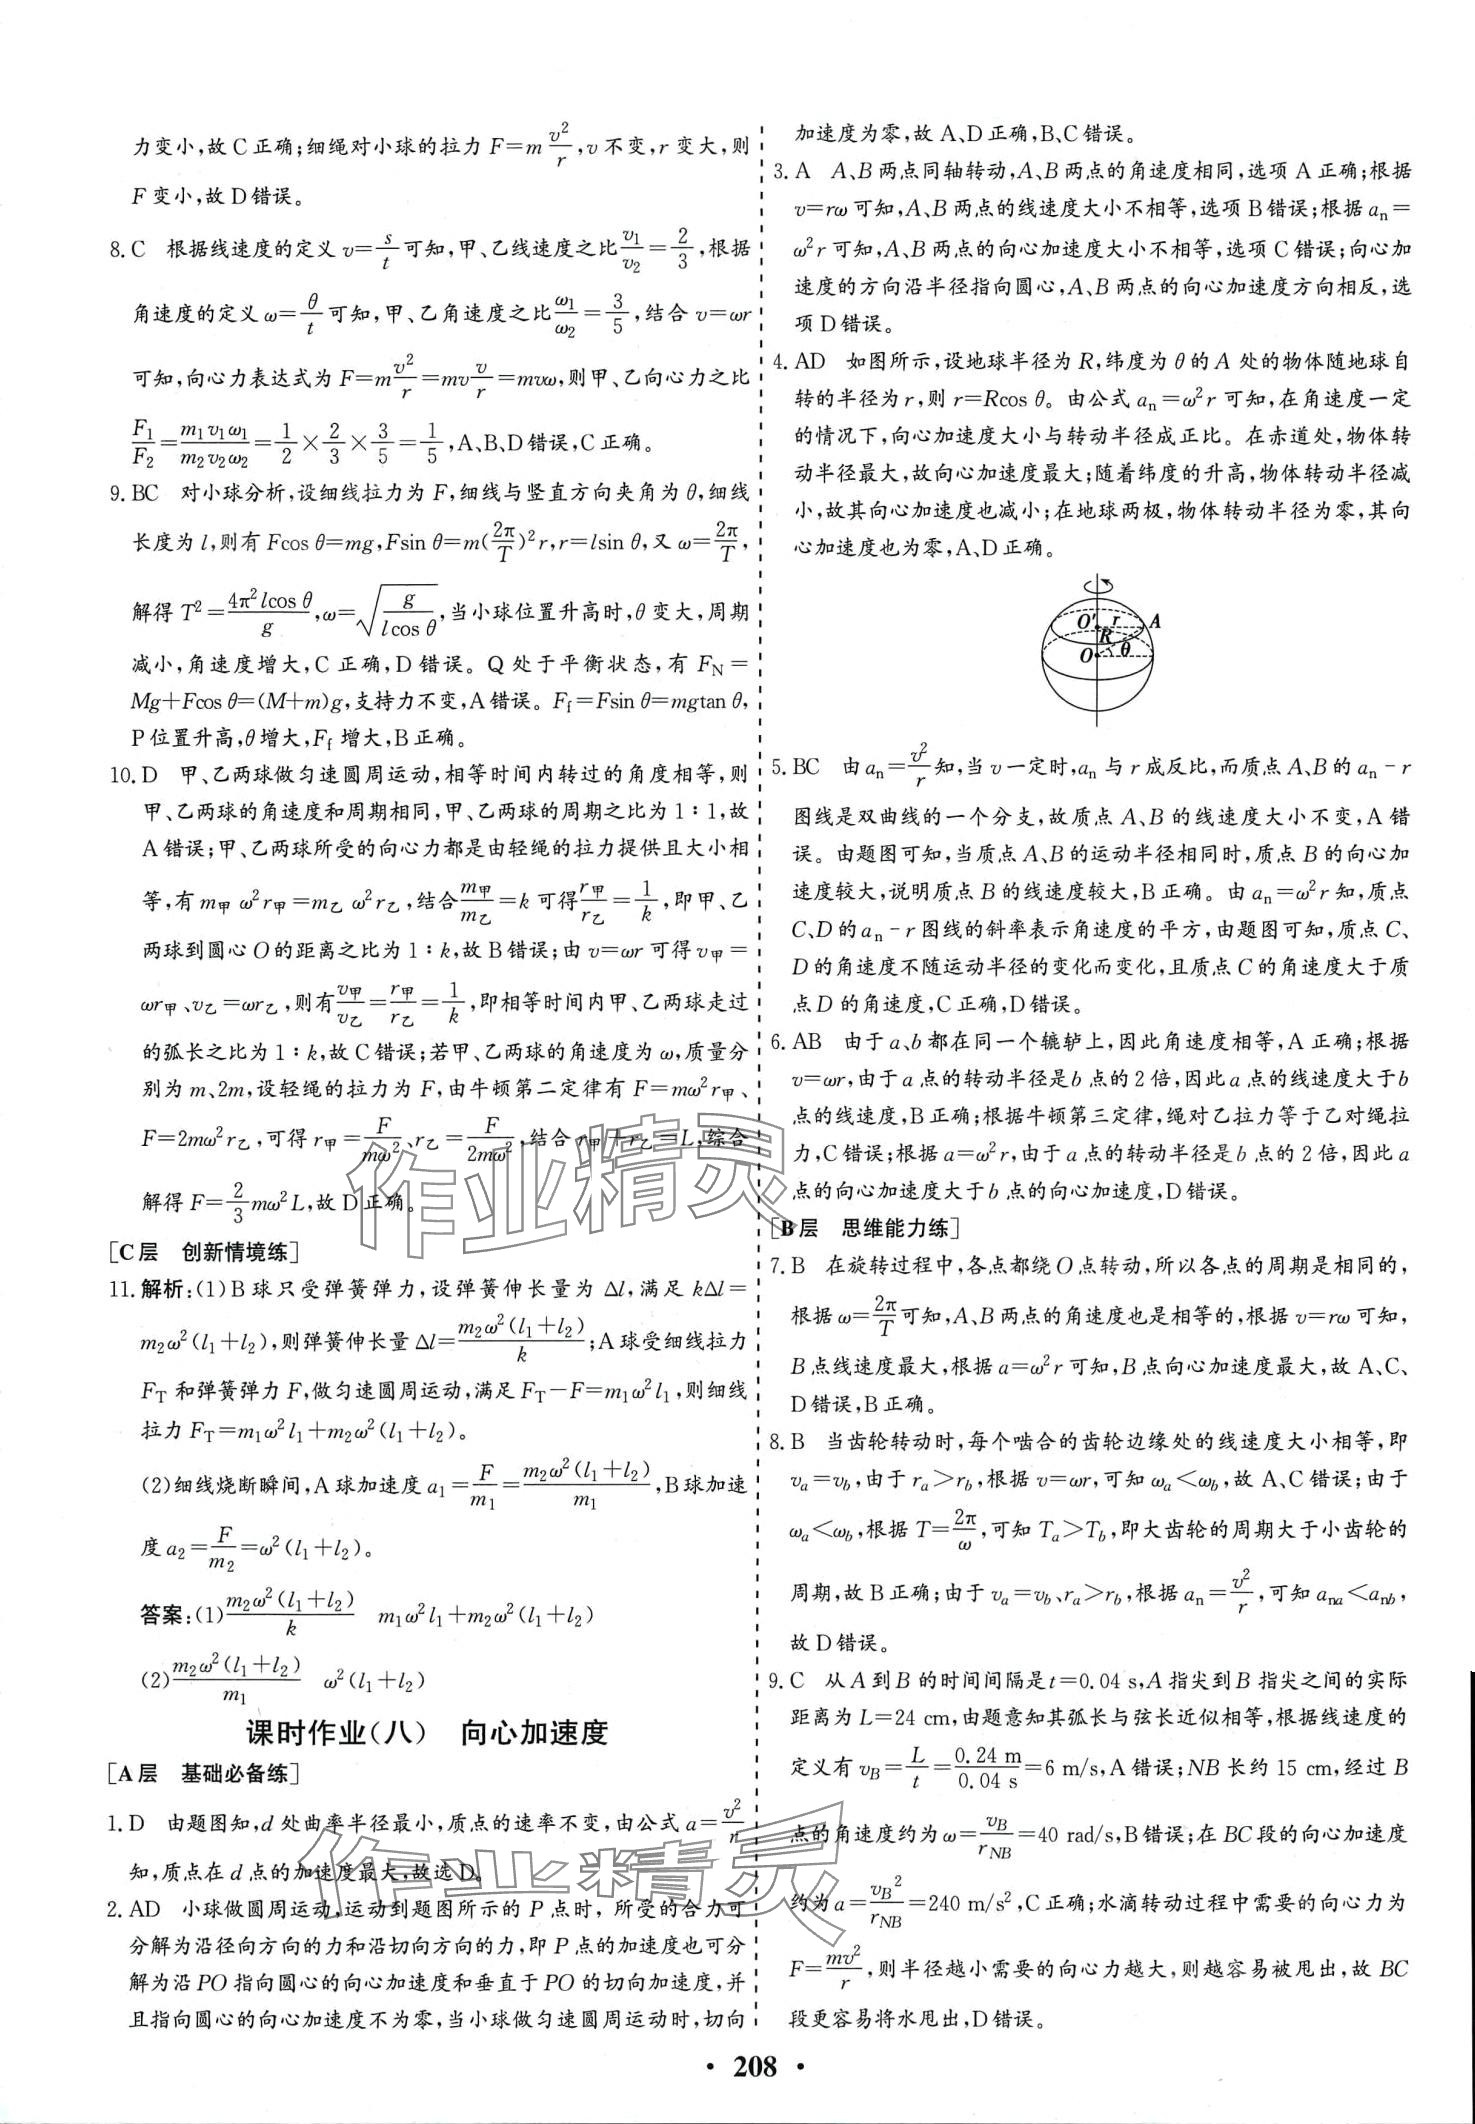 力变小,故C正确;细绳对小球的拉力 F=m v²/r,v 不变,r 变大,则
F 变小,故 D错误。
8. C 根据线速度的定义 v=s/t 可知,甲、乙线速度之比 v₁/v₂=2/3,根据
角速度的定义 ω=θ/t 可知,甲、乙角速度之比 ω₁/ω₂=3/5,结合 v=ωr
可知,向心力表达式为 F=m v²/r=mv v/r=mvω,则甲、乙向心力之比
F₁/F₂=m₁v₁ω₁/m₂v₂ω₂=1/2×2/3×3/5=1/5,A、B、D错误,C正确。
9. BC 对小球分析,设细线拉力为 F,细线与竖直方向夹角为 θ,细线
长度为 l,则有 Fcos θ=mg,Fsin θ=m(2π/T)²r,r=lsin θ,又 ω=2π/T,
解得 T²=4π²lcos θ/g,ω=√(g/lcos θ),当小球位置升高时,θ 变大,周期
减小,角速度增大,C 正确,D 错误。Q 处于平衡状态,有 F_N=
Mg+Fcos θ=(M+m)g,支持力不变,A错误。F_f=Fsin θ=mgtan θ,
P位置升高,θ增大,F_f 增大,B正确。
10. D 甲、乙两球做匀速圆周运动,相等时间内转过的角度相等,则
甲、乙两球的角速度和周期相同,甲、乙两球的周期之比为 1∶1,故
A错误;甲、乙两球所受的向心力都是由轻绳的拉力提供且大小相
等,有 m甲 ω²r甲=m乙 ω²r乙,结合 m甲/m乙=k 可得 r甲/r乙=1/k,即甲、乙
两球到圆心 O 的距离之比为 1∶k,故 B错误;由 v=ωr 可得 v甲=
ωr甲、v乙=ωr乙,则有 v甲/v乙=r甲/r乙=1/k,即相等时间内甲、乙两球走过
的弧长之比为 1∶k,故 C错误;若甲、乙两球的角速度为 ω,质量分
别为 m、2m,设轻绳的拉力为 F,由牛顿第二定律有 F=mω²r甲、
F=2mω²r乙,可得 r甲=F/mω²、r乙=F/2mω²,结合 r甲+r乙=L,综合
解得 F=2/3 mω²L,故 D正确。
[C层 创新情境练]
11. 解析:(1)B 球只受弹簧弹力,设弹簧伸长量为 Δl,满足 kΔl=
m₂ω²(l₁+l₂),则弹簧伸长量 Δl=m₂ω²(l₁+l₂)/k;A球受细线拉力
F_T 和弹簧弹力 F,做匀速圆周运动,满足F_T-F=m₁ω²l₁,则细线
拉力 F_T=m₁ω²l₁+m₂ω²(l₁+l₂)。
(2)细线烧断瞬间,A球加速度 a₁=F/m₁=m₂ω²(l₁+l₂)/m₁,B球加速
度 a₂=F/m₂=ω²(l₁+l₂)。
答案:(1)m₂ω²(l₁+l₂)/k m₁ω²l₁+m₂ω²(l₁+l₂)
(2)m₂ω²(l₁+l₂)/m₁ ω²(l₁+l₂)
课时作业(八) 向心加速度
[A层 基础必备练]
1. D 由题图知,d 处曲率半径最小,质点的速率不变,由公式 a=v²/r
知,质点在 d 点的加速度最大,故选D。
2. AD 小球做圆周运动,运动到题图所示的 P 点时,所受的合力可
分解为沿径向方向的力和沿切向方向的力,即 P 点的加速度也可分
解为沿 PO 指向圆心的向心加速度和垂直于 PO 的切向加速度,并
且指向圆心的向心加速度不为零,当小球做匀速圆周运动时,切向
加速度为零,故 A、D正确,B、C错误。
3. A A、B 两点同轴转动,A、B 两点的角速度相同,选项 A正确;根据
v=rω 可知,A、B 两点的线速度大小不相等,选项 B错误;根据 a_n=
ω²r 可知,A、B 两点的向心加速度大小不相等,选项 C错误;向心加
速度的方向沿半径指向圆心,A、B 两点的向心加速度方向相反,选
项 D错误。
4. AD 如图所示,设地球半径为 R,纬度为 θ 的 A 处的物体随地球自
转的半径为 r,则 r=Rcos θ。由公式 a_n=ω²r 可知,在角速度一定
的情况下,向心加速度大小与转动半径成正比。在赤道处,物体转
动半径最大,故向心加速度最大;随着纬度的升高,物体转动半径减
小,故其向心加速度也减小;在地球两极,物体转动半径为零,其向
心加速度也为零,A、D正确。
O′ r A
R
O θ
5. BC 由 a_n=v²/r知,当 v 一定时,a_n 与 r 成反比,而质点A、B的 a_n-r
图线是双曲线的一个分支,故质点 A、B 的线速度大小不变,A 错
误。由题图可知,当质点 A、B 的运动半径相同时,质点 B 的向心加
速度较大,说明质点 B 的线速度较大,B正确。由 a_n=ω²r 知,质点
C、D的 a_n-r 图线的斜率表示角速度的平方,由题图可知,质点 C、
D 的角速度不随运动半径的变化而变化,且质点 C 的角速度大于质
点 D 的角速度,C正确,D错误。
6. AB 由于 a、b 都在同一个辘轳上,因此角速度相等,A 正确;根据
v=ωr,由于 a 点的转动半径是 b 点的 2 倍,因此 a 点的线速度大于 b
点的线速度,B正确;根据牛顿第三定律,绳对乙拉力等于乙对绳拉
力,C错误;根据 a=ω²r,由于 a 点的转动半径是 b 点的 2 倍,因此 a
点的向心加速度大于 b 点的向心加速度,D错误。
[B层 思维能力练]
7. B 在旋转过程中,各点都绕 O 点转动,所以各点的周期是相同的,
根据 ω=2π/T 可知,A、B 两点的角速度也是相等的,根据 v=rω 可知,
B 点线速度最大,根据 a=ω²r 可知,B 点向心加速度最大,故 A、C、
D错误,B正确。
8. B 当齿轮转动时,每个啮合的齿轮边缘处的线速度大小相等,即
v_a=v_b,由于 r_a>r_b,根据 v=ωr,可知 ω_a<ω_b,故 A、C错误;由于
ω_a<ω_b,根据 T=2π/ω,可知 T_a>T_b,即大齿轮的周期大于小齿轮的
周期,故 B正确;由于 v_a=v_b、r_a>r_b,根据 a_n=v²/r,可知 a_na<a_nb,
故 D错误。
9. C 从 A 到 B 的时间间隔是 t=0.04 s,A 指尖到 B 指尖之间的实际
距离为 L=24 cm,由题意知其弧长与弦长近似相等,根据线速度的
定义有 v_B=L/t=0.24 m/0.04 s=6 m/s,A 错误;NB 长约 15 cm,经过 B
点的角速度约为 ω=v_B/r_NB=40 rad/s,B错误;在 BC段的向心加速度
约为 a=v_B²/r_NB=240 m/s²,C 正确;水滴转动过程中需要的向心力为
F=mv²/r,则半径越小需要的向心力越大,则越容易被甩出,故 BC
段更容易将水甩出,D错误。
作业精灵
作业精灵
• 208 •